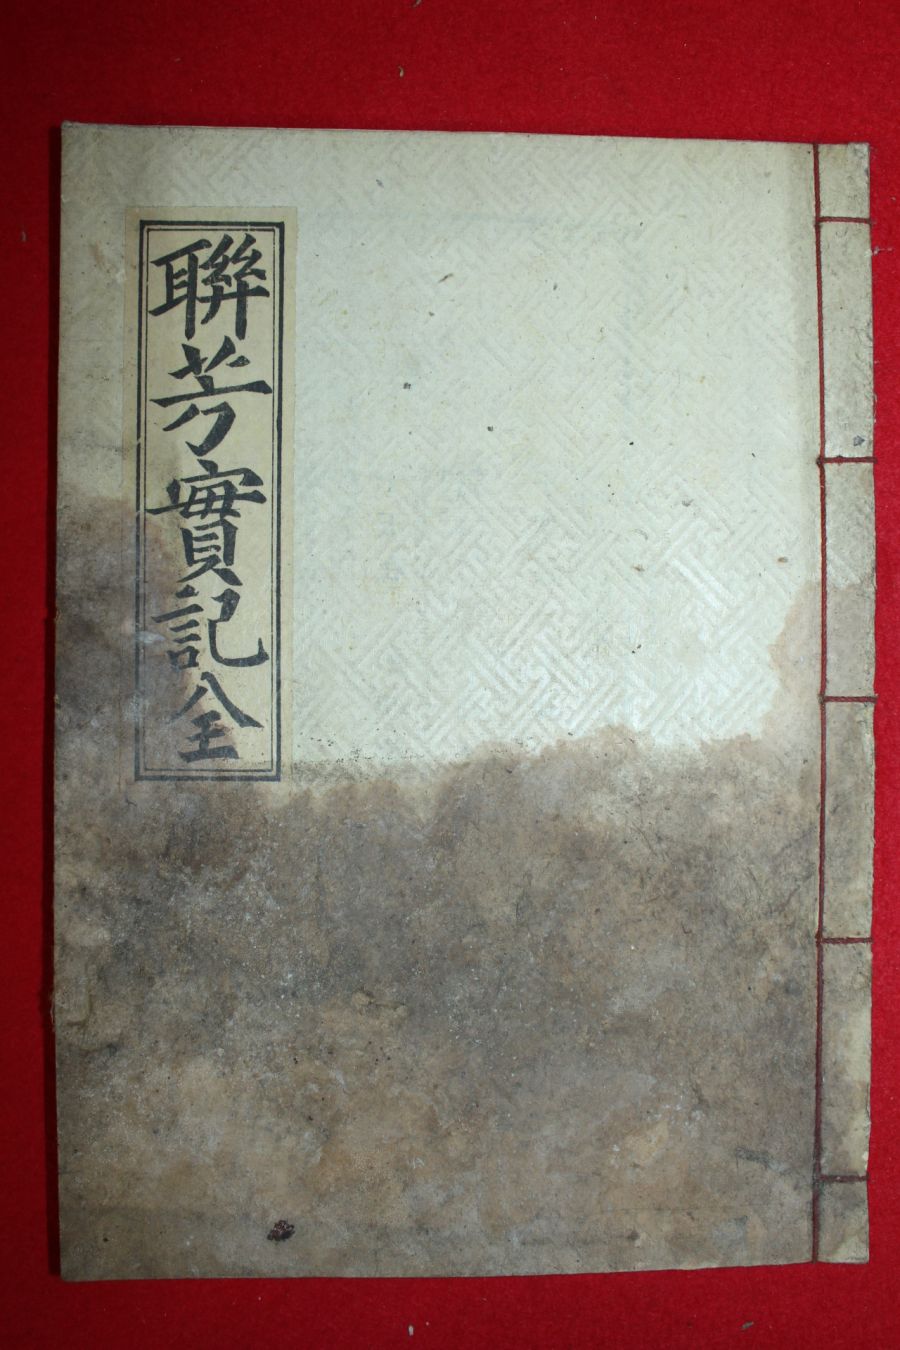 聯芳實記全